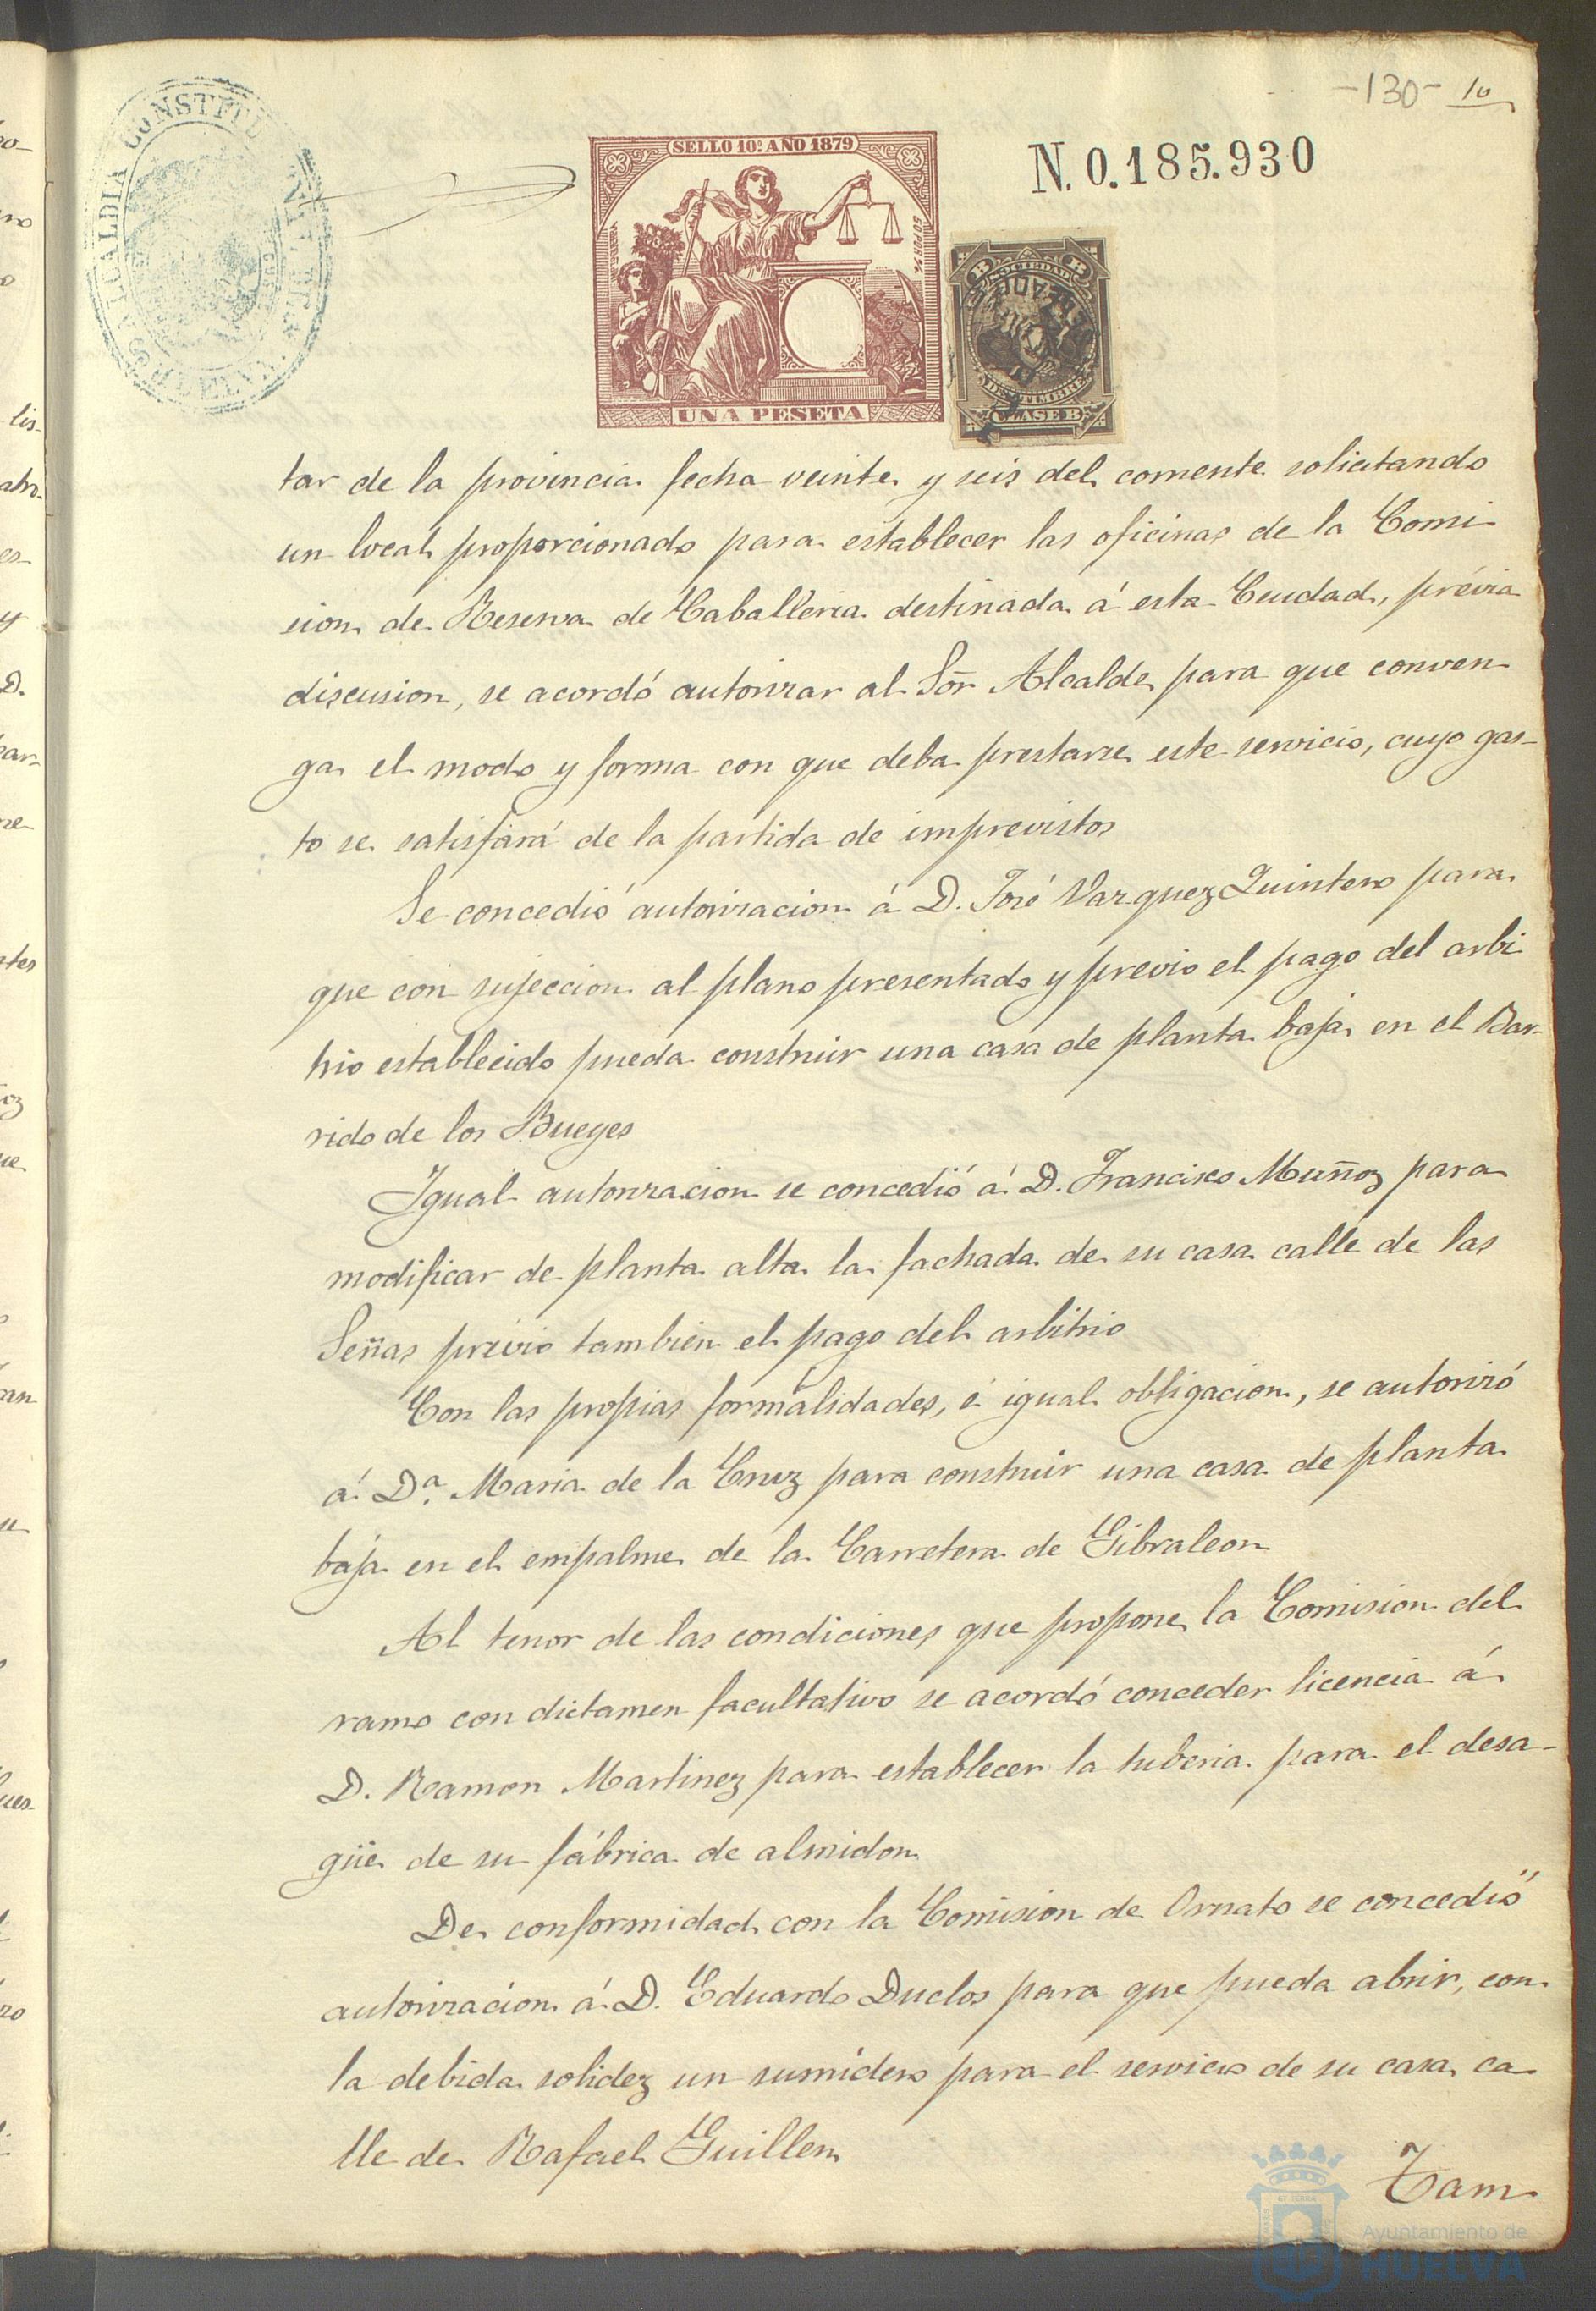 -130- 10
SELLO 10º AÑO 1879
N. 0.185.930
ALCALDIA CONSTITU
HUELVA
UNA PESETA
B SOCIEDAD B
DEL TIMBRE
CLASE B
tar de la provincia fecha veinte y seis del corriente solicitando
un local proporcionado para establecer las oficinas de la Comi
sion de Reserva de Caballeria destinada á esta Ciudad, prévia
discusion, se acordó autorizar al Sōr Alcalde para que conven
ga el modo y forma con que deba prestarse este servicio, cuyo gas-
to se satisfará de la partida de imprevistos
Se concedió autorizacion á D. José Vazquez Quintero para
que con sujeccion al plano presentado y previo el pago del arbi
trio establecido pueda construir una casa de planta baja en el Bar-
rido de los Bueyes
Igual autorizacion se concedió á D. Francisco Muñoz para
modificar de planta alta la fachada de su casa calle de las
Señas prévio tambien el pago del arbitrio
Con las propias formalidades, é igual obligacion, se autorizó
á Dª. Maria de la Cruz para construir una casa de planta
baja en el empalme de la Carretera de Gibraleon
Al tenor de las condiciones que propone la Comision del
ramo con dictamen facultativo se acordó conceder licencia á
D. Ramon Martinez para establecer la tuberia para el desa-
güe de su fábrica de almidon
De conformidad con la Comision de Ornato se concedió
autorizacion á D. Eduardo Duclos para que pueda abrir, con
la debida solidez un sumidero para el servicio de su casa ca
lle de Rafael Guillen
Tam
Ayuntamiento de
HUELVA